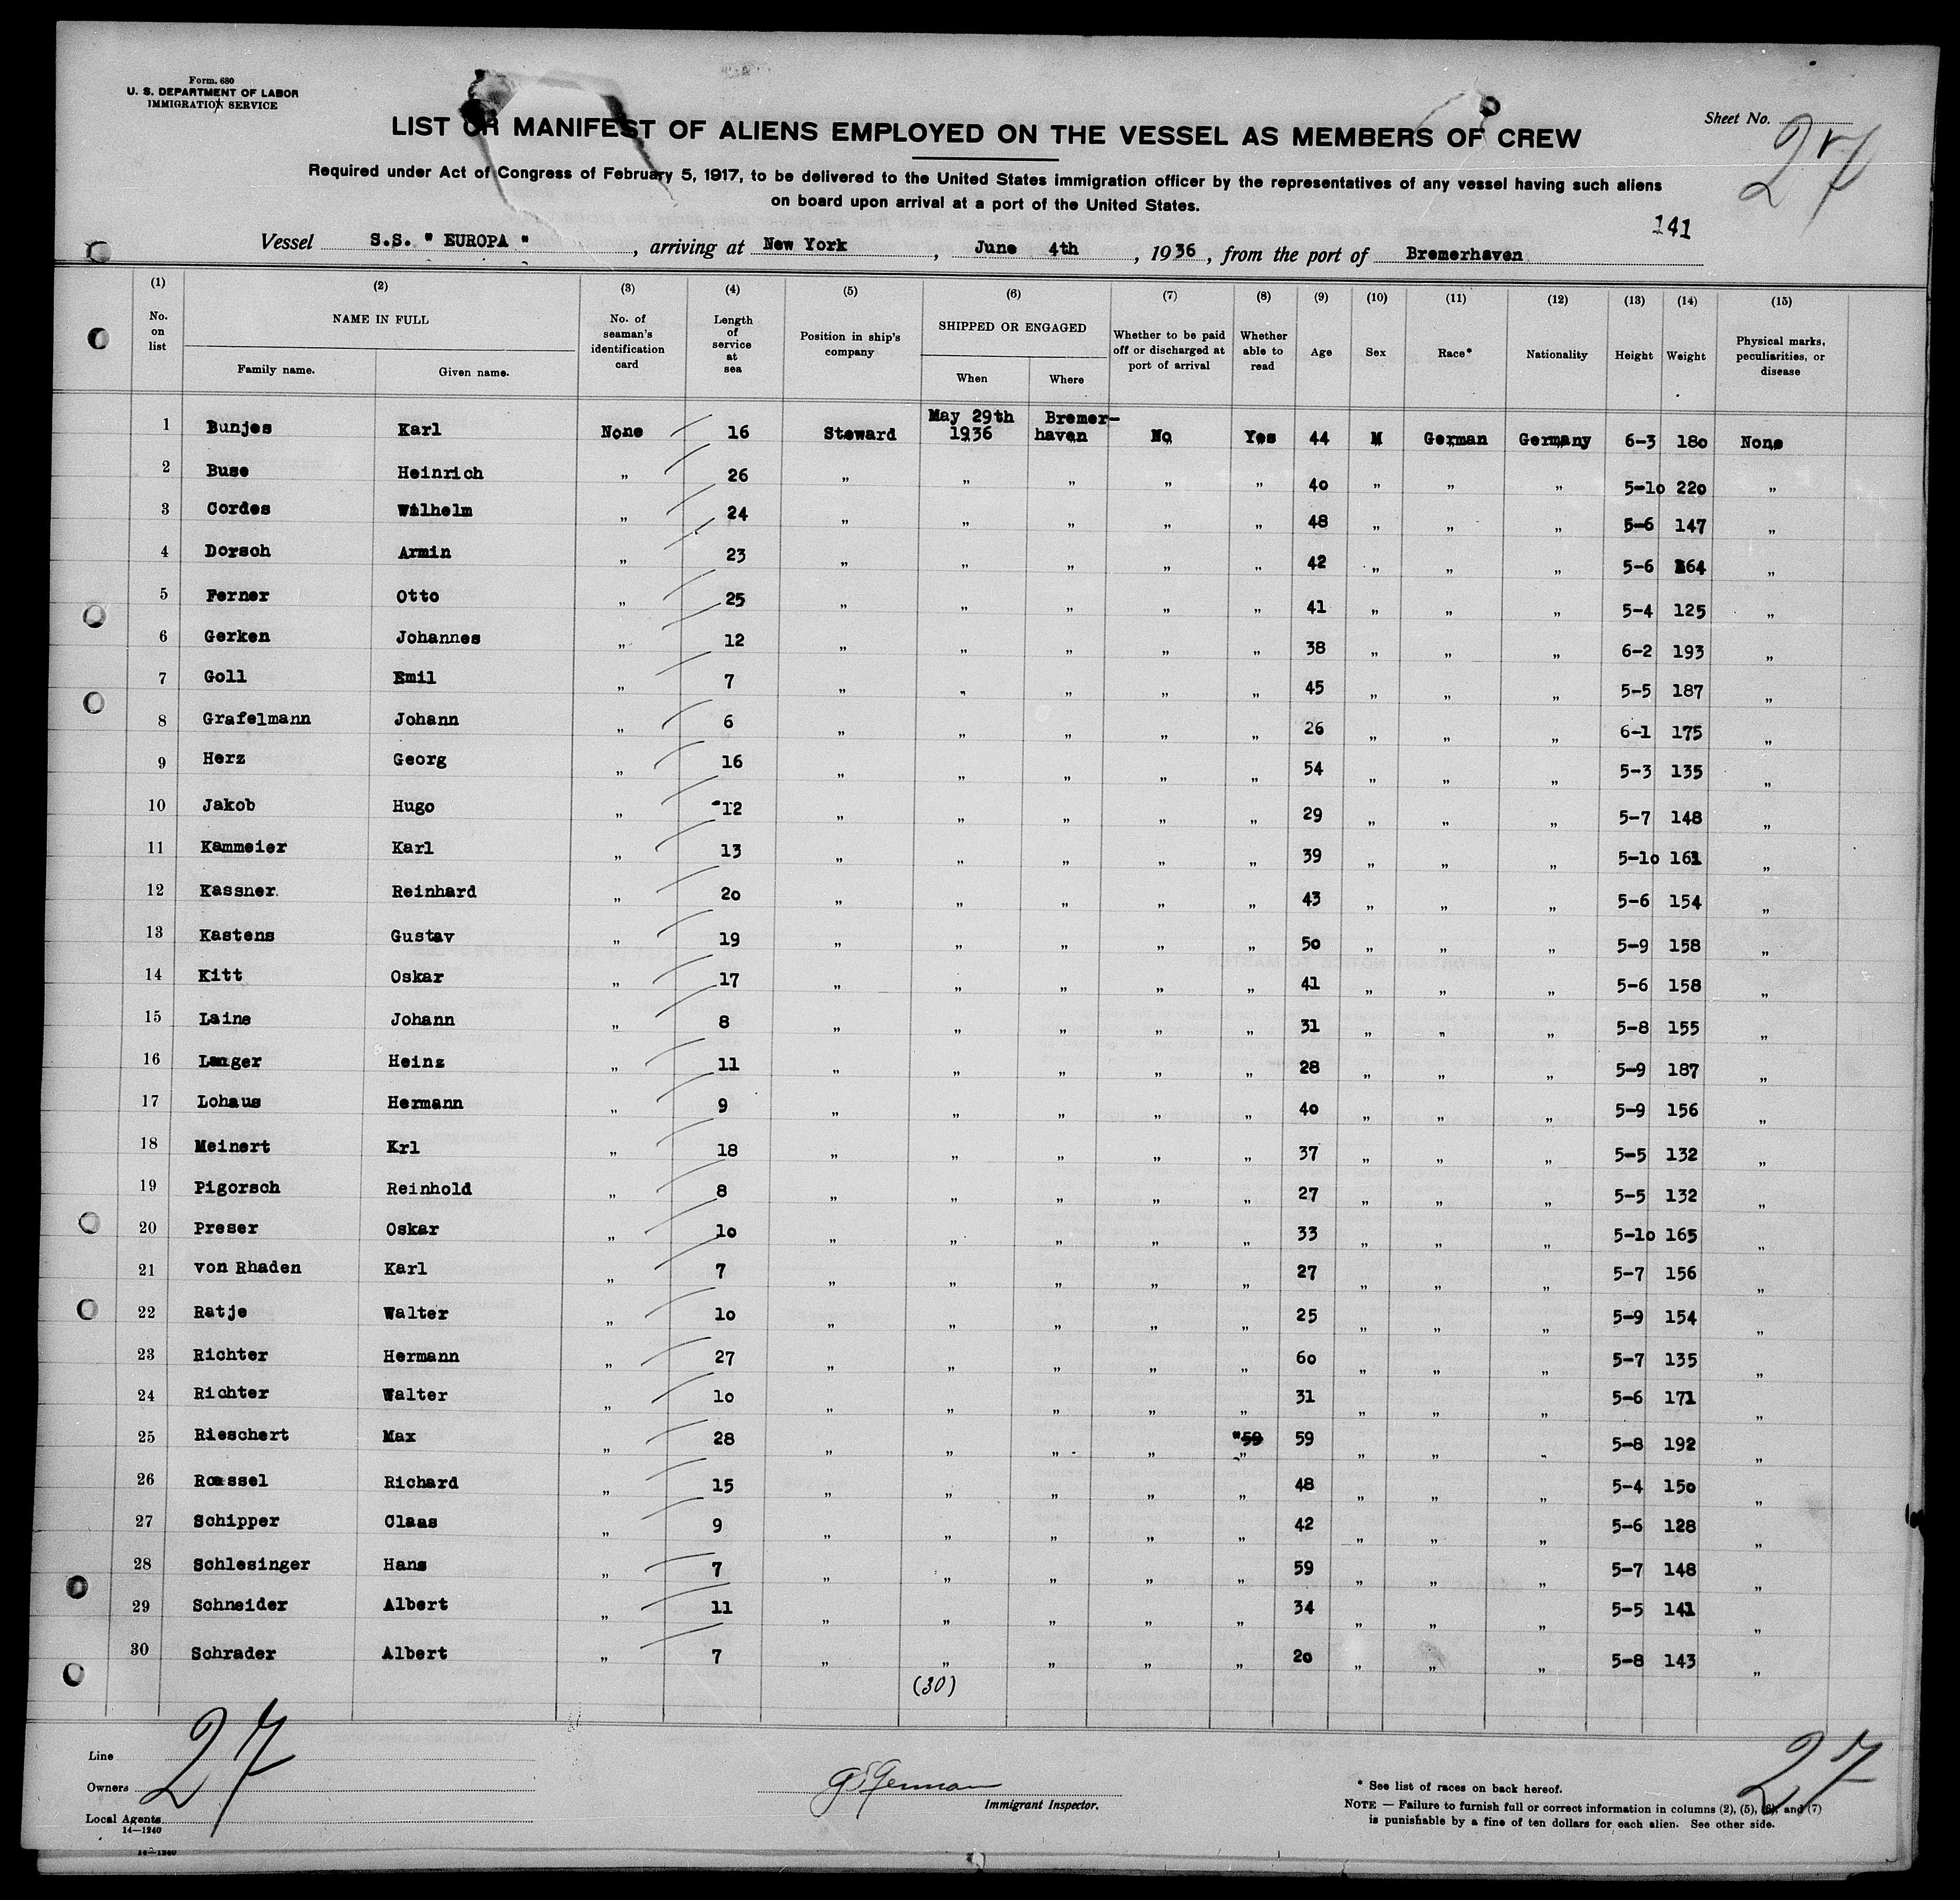 Form. 680
U. S. DEPARTMENT OF LABOR
IMMIGRATION SERVICE
Sheet No. 27
LIST OR MANIFEST OF ALIENS EMPLOYED ON THE VESSEL AS MEMBERS OF CREW
Required under Act of Congress of February 5, 1917, to be delivered to the United States immigration officer by the representatives of any vessel having such aliens
on board upon arrival at a port of the United States.
141
Vessel S.S. " EUROPA " , arriving at New York , June 4th , 1936 , from the port of Bremerhaven
(1) (2) (3) (4) (5) (6) (7) (8) (9) (10) (11) (12) (13) (14) (15)
No. on list NAME IN FULL Family name. Given name. No. of seaman's identification card Length of service at sea Position in ship's company SHIPPED OR ENGAGED When Where Whether to be paid off or discharged at port of arrival Whether able to read Age Sex Race* Nationality Height Weight Physical marks, peculiarities, or disease
1 Bunjes Karl None 16 Steward May 29th 1936 Bremer-haven No Yes 44 M German Germany 6-3 180 None
2 Buse Heinrich " 26 " " " " " 40 " " " 5-10 220 "
3 Cordes Wilhelm " 24 " " " " " 48 " " " 5-6 147 "
4 Dorsch Armin " 23 " " " " " 42 " " " 5-6 164 "
5 Ferner Otto " 25 " " " " " 41 " " " 5-4 125 "
6 Gerken Johannes " 12 " " " " " 38 " " " 6-2 193 "
7 Goll Emil " 7 " " " " " 45 " " " 5-5 187 "
8 Grafelmann Johann " 6 " " " " " 26 " " " 6-1 175 "
9 Herz Georg " 16 " " " " " 54 " " " 5-3 135 "
10 Jakob Hugo " 12 " " " " " 29 " " " 5-7 148 "
11 Kammeier Karl " 13 " " " " " 39 " " " 5-10 161 "
12 Kassner. Reinhard " 20 " " " " " 43 " " " 5-6 154 "
13 Kastens Gustav " 19 " " " " " 50 " " " 5-9 158 "
14 Kitt Oskar " 17 " " " " " 41 " " " 5-6 158 "
15 Laine Johann " 8 " " " " " 31 " " " 5-8 155 "
16 Langer Heinz " 11 " " " " " 28 " " " 5-9 187 "
17 Lohaus Hermann " 9 " " " " " 40 " " " 5-9 156 "
18 Meinert Krl " 18 " " " " " 37 " " " 5-5 132 "
19 Pigorsch Reinhold " 8 " " " " " 27 " " " 5-5 132 "
20 Preser Oskar " 10 " " " " " 33 " " " 5-10 165 "
21 von Rhaden Karl " 7 " " " " " 27 " " " 5-7 156 "
22 Ratje Walter " 10 " " " " " 25 " " " 5-9 154 "
23 Richter Hermann " 27 " " " " " 60 " " " 5-7 135 "
24 Richter Walter " 10 " " " " " 31 " " " 5-6 171 "
25 Rieschert Max " 28 " " " " "59 " 59 " " " 5-8 192 "
26 Roessel Richard " 15 " " " " " 48 " " " 5-4 150 "
27 Schipper Claas " 9 " " " " " 42 " " " 5-6 128 "
28 Schlesinger Hans " 7 " " " " " 59 " " " 5-7 148 "
29 Schneider Albert " 11 " " " " " 34 " " " 5-5 141 "
30 Schrader Albert " 7 " " " " " 20 " " " 5-8 143 "
(30)
Line
Owners
Local Agents
27
14—1240
Immigrant Inspector.
* See list of races on back hereof.
NOTE — Failure to furnish full or correct information in columns (2), (5), (6), and (7)
is punishable by a fine of ten dollars for each alien. See other side.
27
14—1240